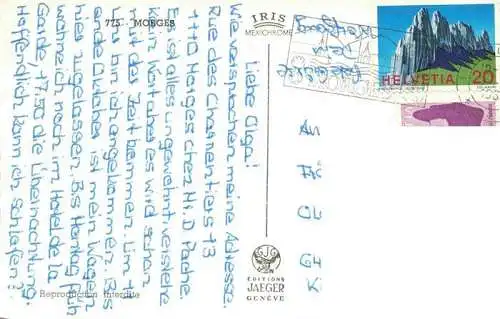 775 - MORGES
IRIS
MEXICHROME
HELVETIA
20
Liebe Olga!
Wie versprochen meine Adresse.
Rue des Charpentiers 13
1110 Morges chez Hr. D. Pache.
Es ist alles ungewohnt, verstehe
kein Wort aber es wird schon
mit der Zeit kommen. Um 17
Uhr bin ich angekommen. Bis
ande Quichez ist mein Wagen
hier zugelassen. Bis Montag früh
wohne ich noch im Hotel de la
Gare, 17.50 die Übernachtung.
Hoffentlich kann ich schlafen?
An
OL
K
EDITIONS
JAEGER
GENÈVE
Reproduction interdite